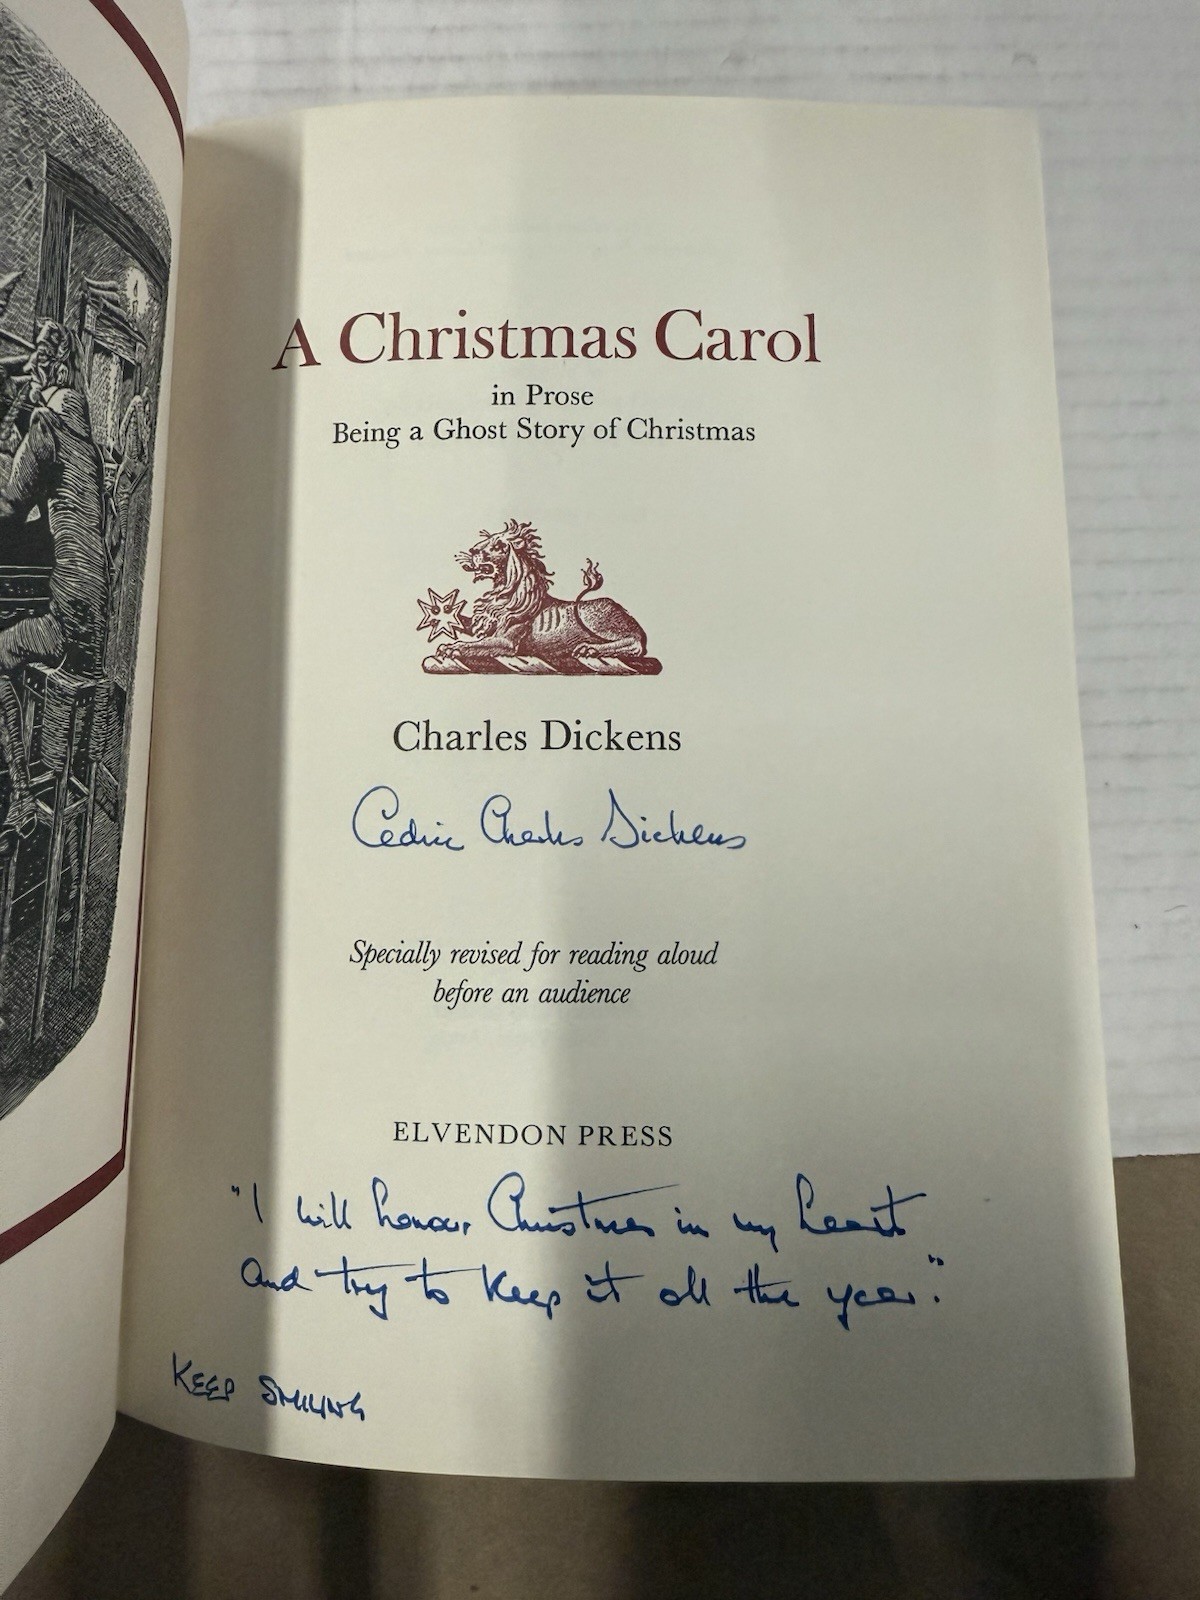 A Christmas Carol
in Prose
Being a Ghost Story of Christmas
Charles Dickens
Cedric Charles Dickens
Specially revised for reading aloud
before an audience
ELVENDON PRESS
"I will honour Christmas in my heart
and try to keep it all the year."
KEEP SMILING